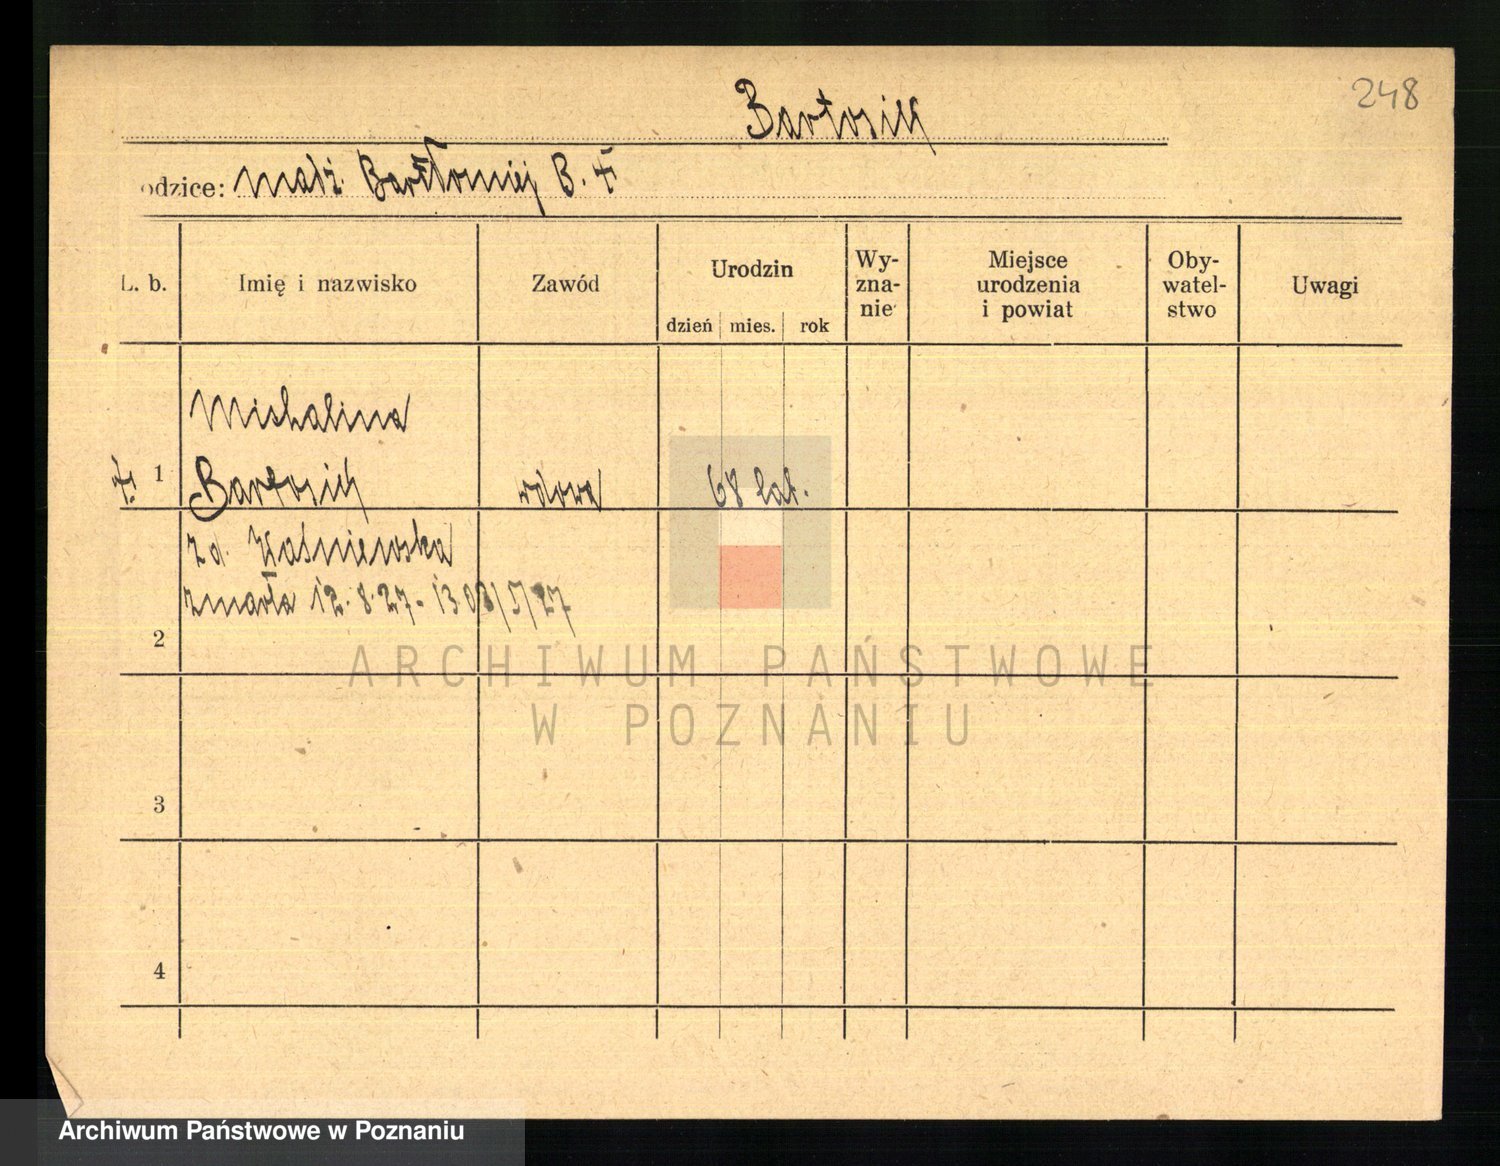 248
Bartosik
odzice: małż. Bartłomiej B. †
L. b. Imię i nazwisko Zawód Urodzin dzień mies. rok Wy-zna-nie Miejsce urodzenia i powiat Oby-watel-stwo Uwagi
Michalina
† 1 Bartosik wdowa 68 lat.
zd. Kaśniewska
zmarła 12.8.27 - 1303/5/27
2
3
4
ARCHIWUM PAŃSTWOWE
W POZNANIU
Archiwum Państwowe w Poznaniu